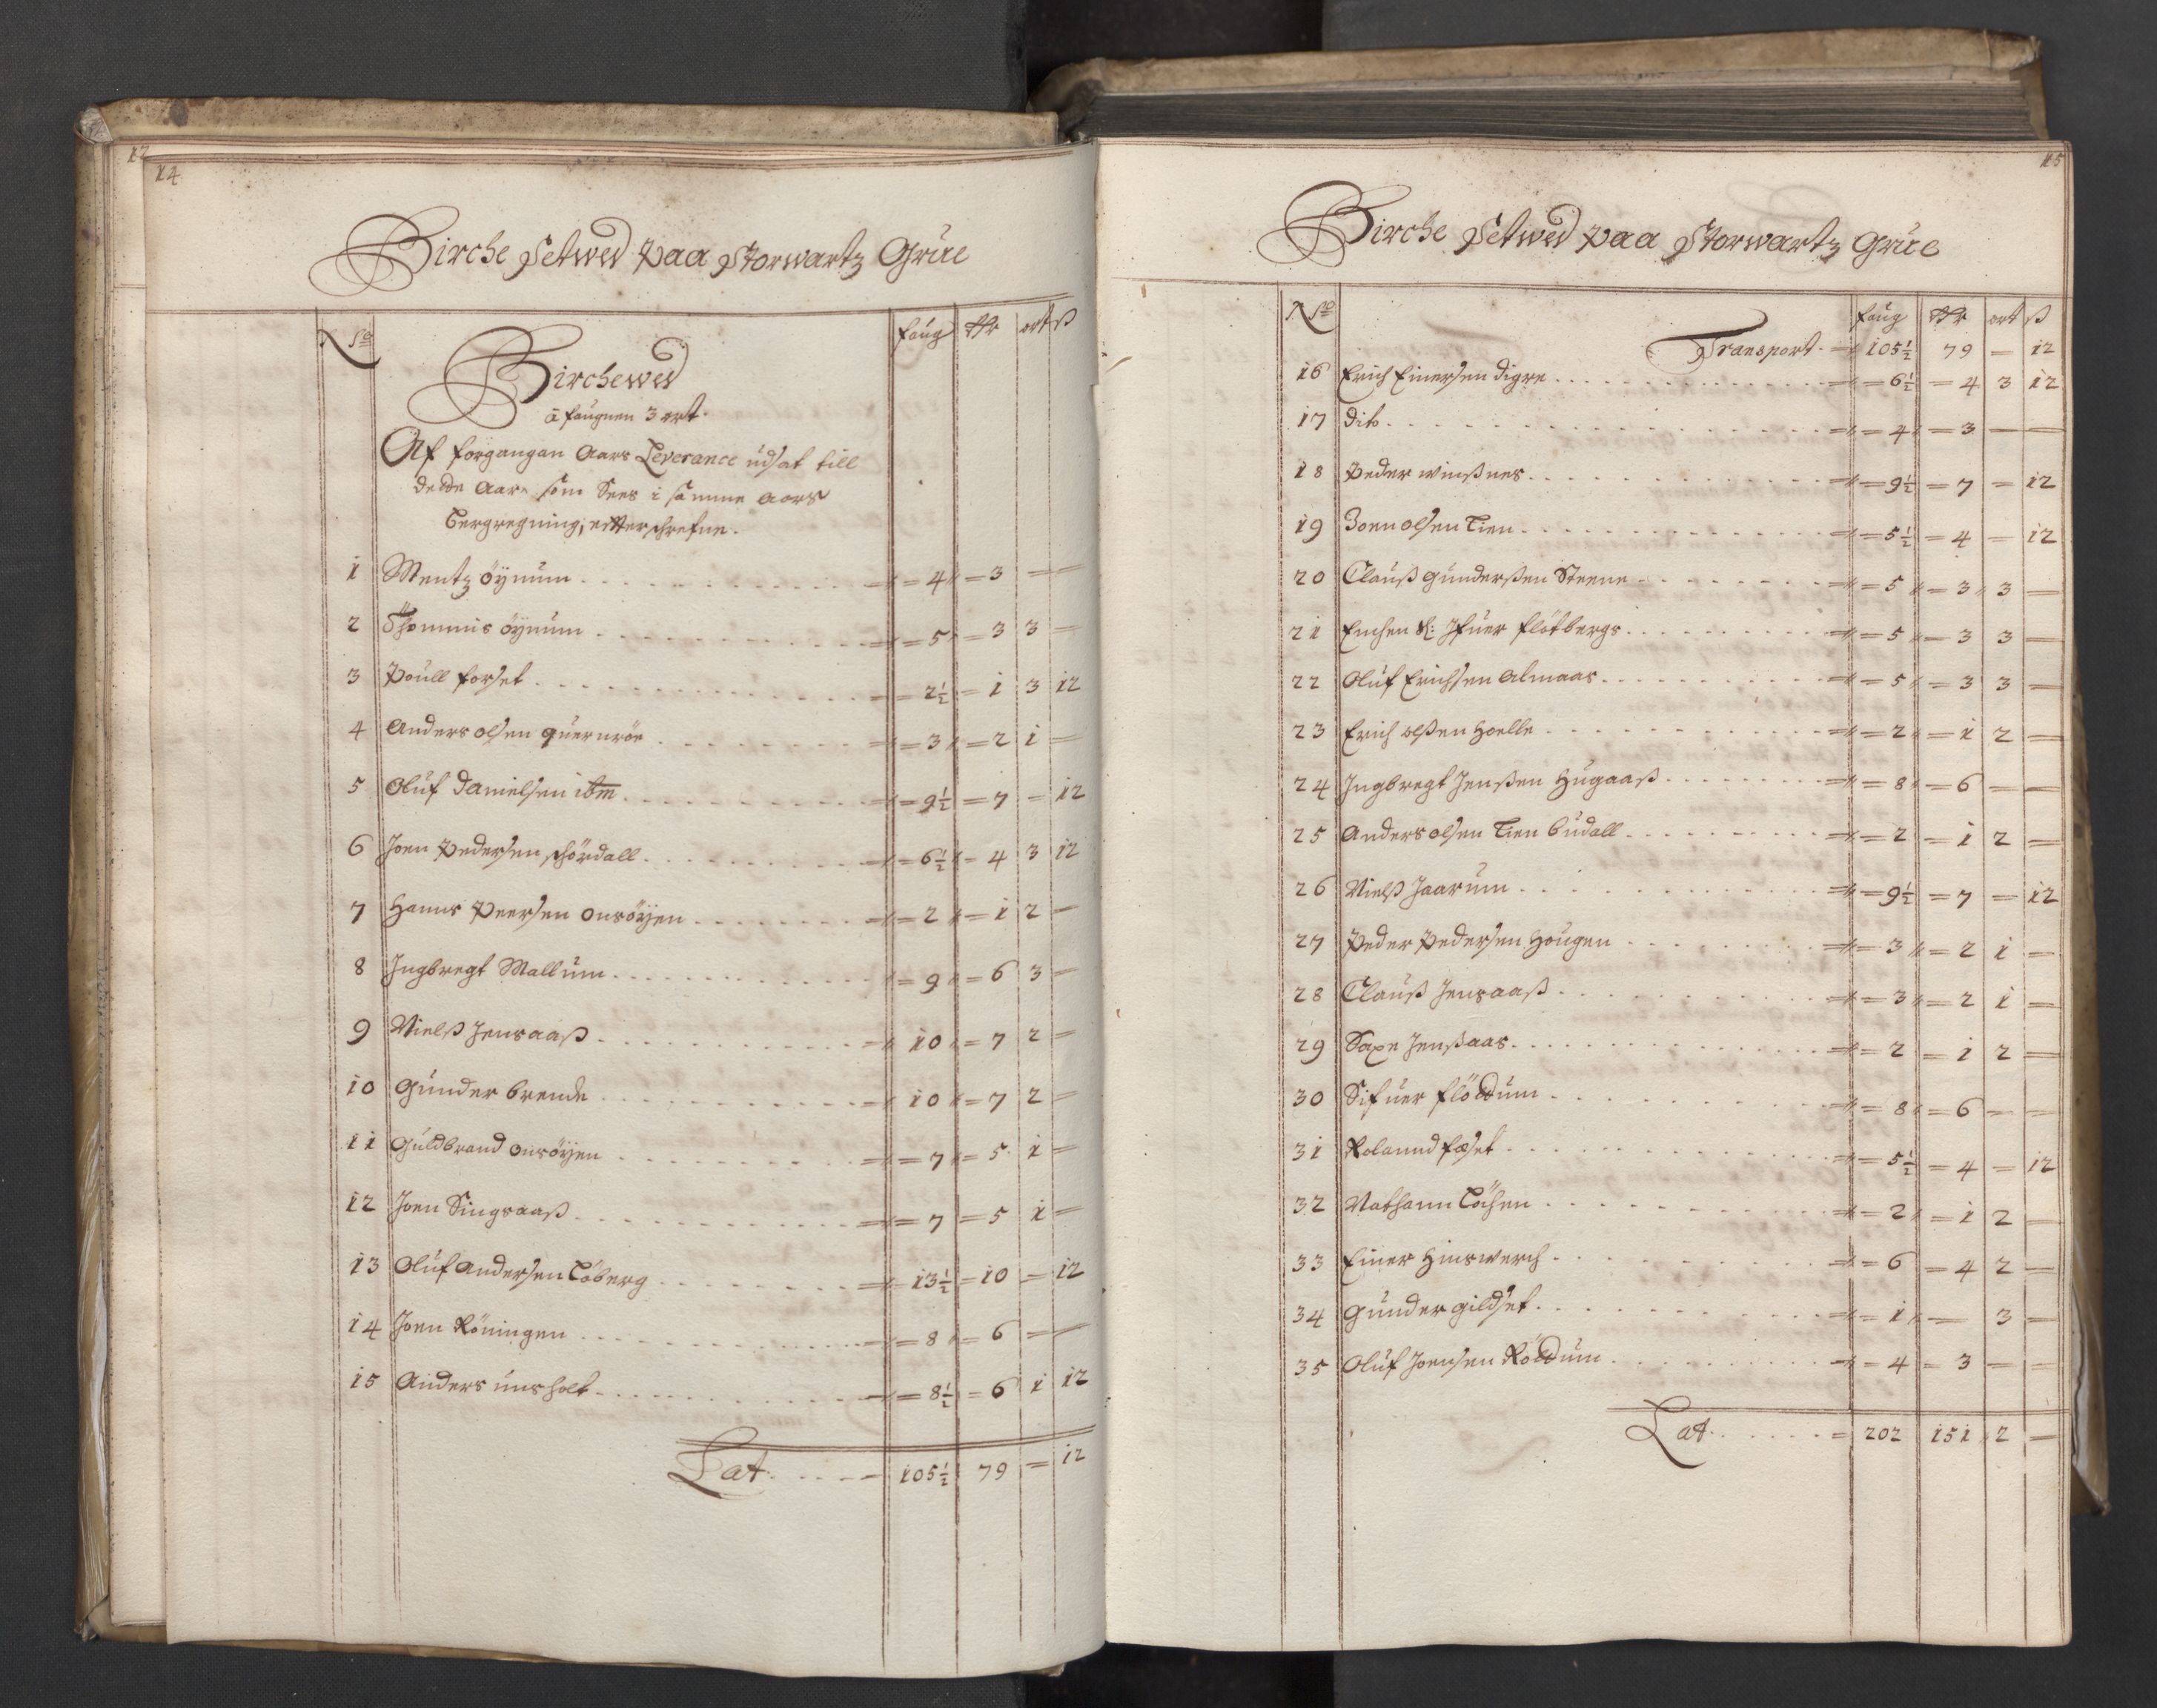 12
14
Birche Setwed Paa Storwartz Grüe
No
faug Rdr ort ß
Birchewed
à faugnen 3 ort.
Af forgangan Aars Leverance udsat till
dette Aar, som Sees i samme Aars
bergregning, efterschrefne.
1 Mentz öynum . . . = 4 = 3 — —
2 Thommis öynum . . . = 5 = 3 3 —
3 Poull forset . . . = 2½ = 1 3 12
4 Anders olsen quernröe . . . = 3 = 2 1 —
5 Oluf Danielsen itm . . . = 9½ = 7 — 12
6 Joen Pedersen schördall . . . = 6½ = 4 3 12
7 Hanns Peersen onsöyen . . . = 2 = 1 2 —
8 Ingbregt Mallum . . . = 9 = 6 3 —
9 Nielß Jensaaß . . . 10 = 7 2 —
10 Gunder brende . . . 10 = 7 2 —
11 Guldbrand onsöyen . . . = 7 = 5 1 —
12 Joen Singsaaß . . . = 7 = 5 1 —
13 Oluf Andersen Töberg . . . 13½ = 10 — 12
14 Joen Röningen . . . = 8 = 6 — —
15 Anders unsholt . . . = 8½ = 6 1 12
Lat . . . 105½ 79 — 12
15
Birche Setwed Paa Storwartz Grüe
No
faug Rdr ort ß
Transport. 105½ 79 — 12
16 Erich Einersen digre . . . = 6½ = 4 3 12
17 dito . . . = 4 = 3 — —
18 Peder winßnes . . . = 9½ = 7 — 12
19 Joen olsen Tien . . . = 5½ = 4 — 12
20 Clauß gunderßen Steene . . . = 5 = 3 3 —
21 Enchen Sl: Ifuer flötbergs . . . = 5 = 3 3 —
22 Oluf Erichsen almaas . . . = 5 = 3 3 —
23 Erich olßen Hoelle . . . = 2 = 1 2 —
24 Ingbregt Jenßen Hugaaß . . . = 8 = 6 — —
25 Anders olsen Tien budall . . . = 2 = 1 2 —
26 Nielß Jaarum . . . = 9½ = 7 — 12
27 Peder Pedersen Hougen . . . = 3 = 2 1 —
28 Clauß Jensaaß . . . = 3 = 2 1 —
29 Saxe Jenßaas . . . = 2 = 1 2 —
30 Sifuer flöttum . . . = 8 = 6 — —
31 Rolannd fæset . . . = 5½ = 4 — 12
32 Nathann . . . = 2 = 1 2 —
33 Einer Hinswerch . . . = 6 = 4 2 —
34 Gunder gildset . . . = 1 = — 3 —
35 Oluf Joensen Röttum . . . = 4 = 3 — —
Lat . . . = 202 151 2 —